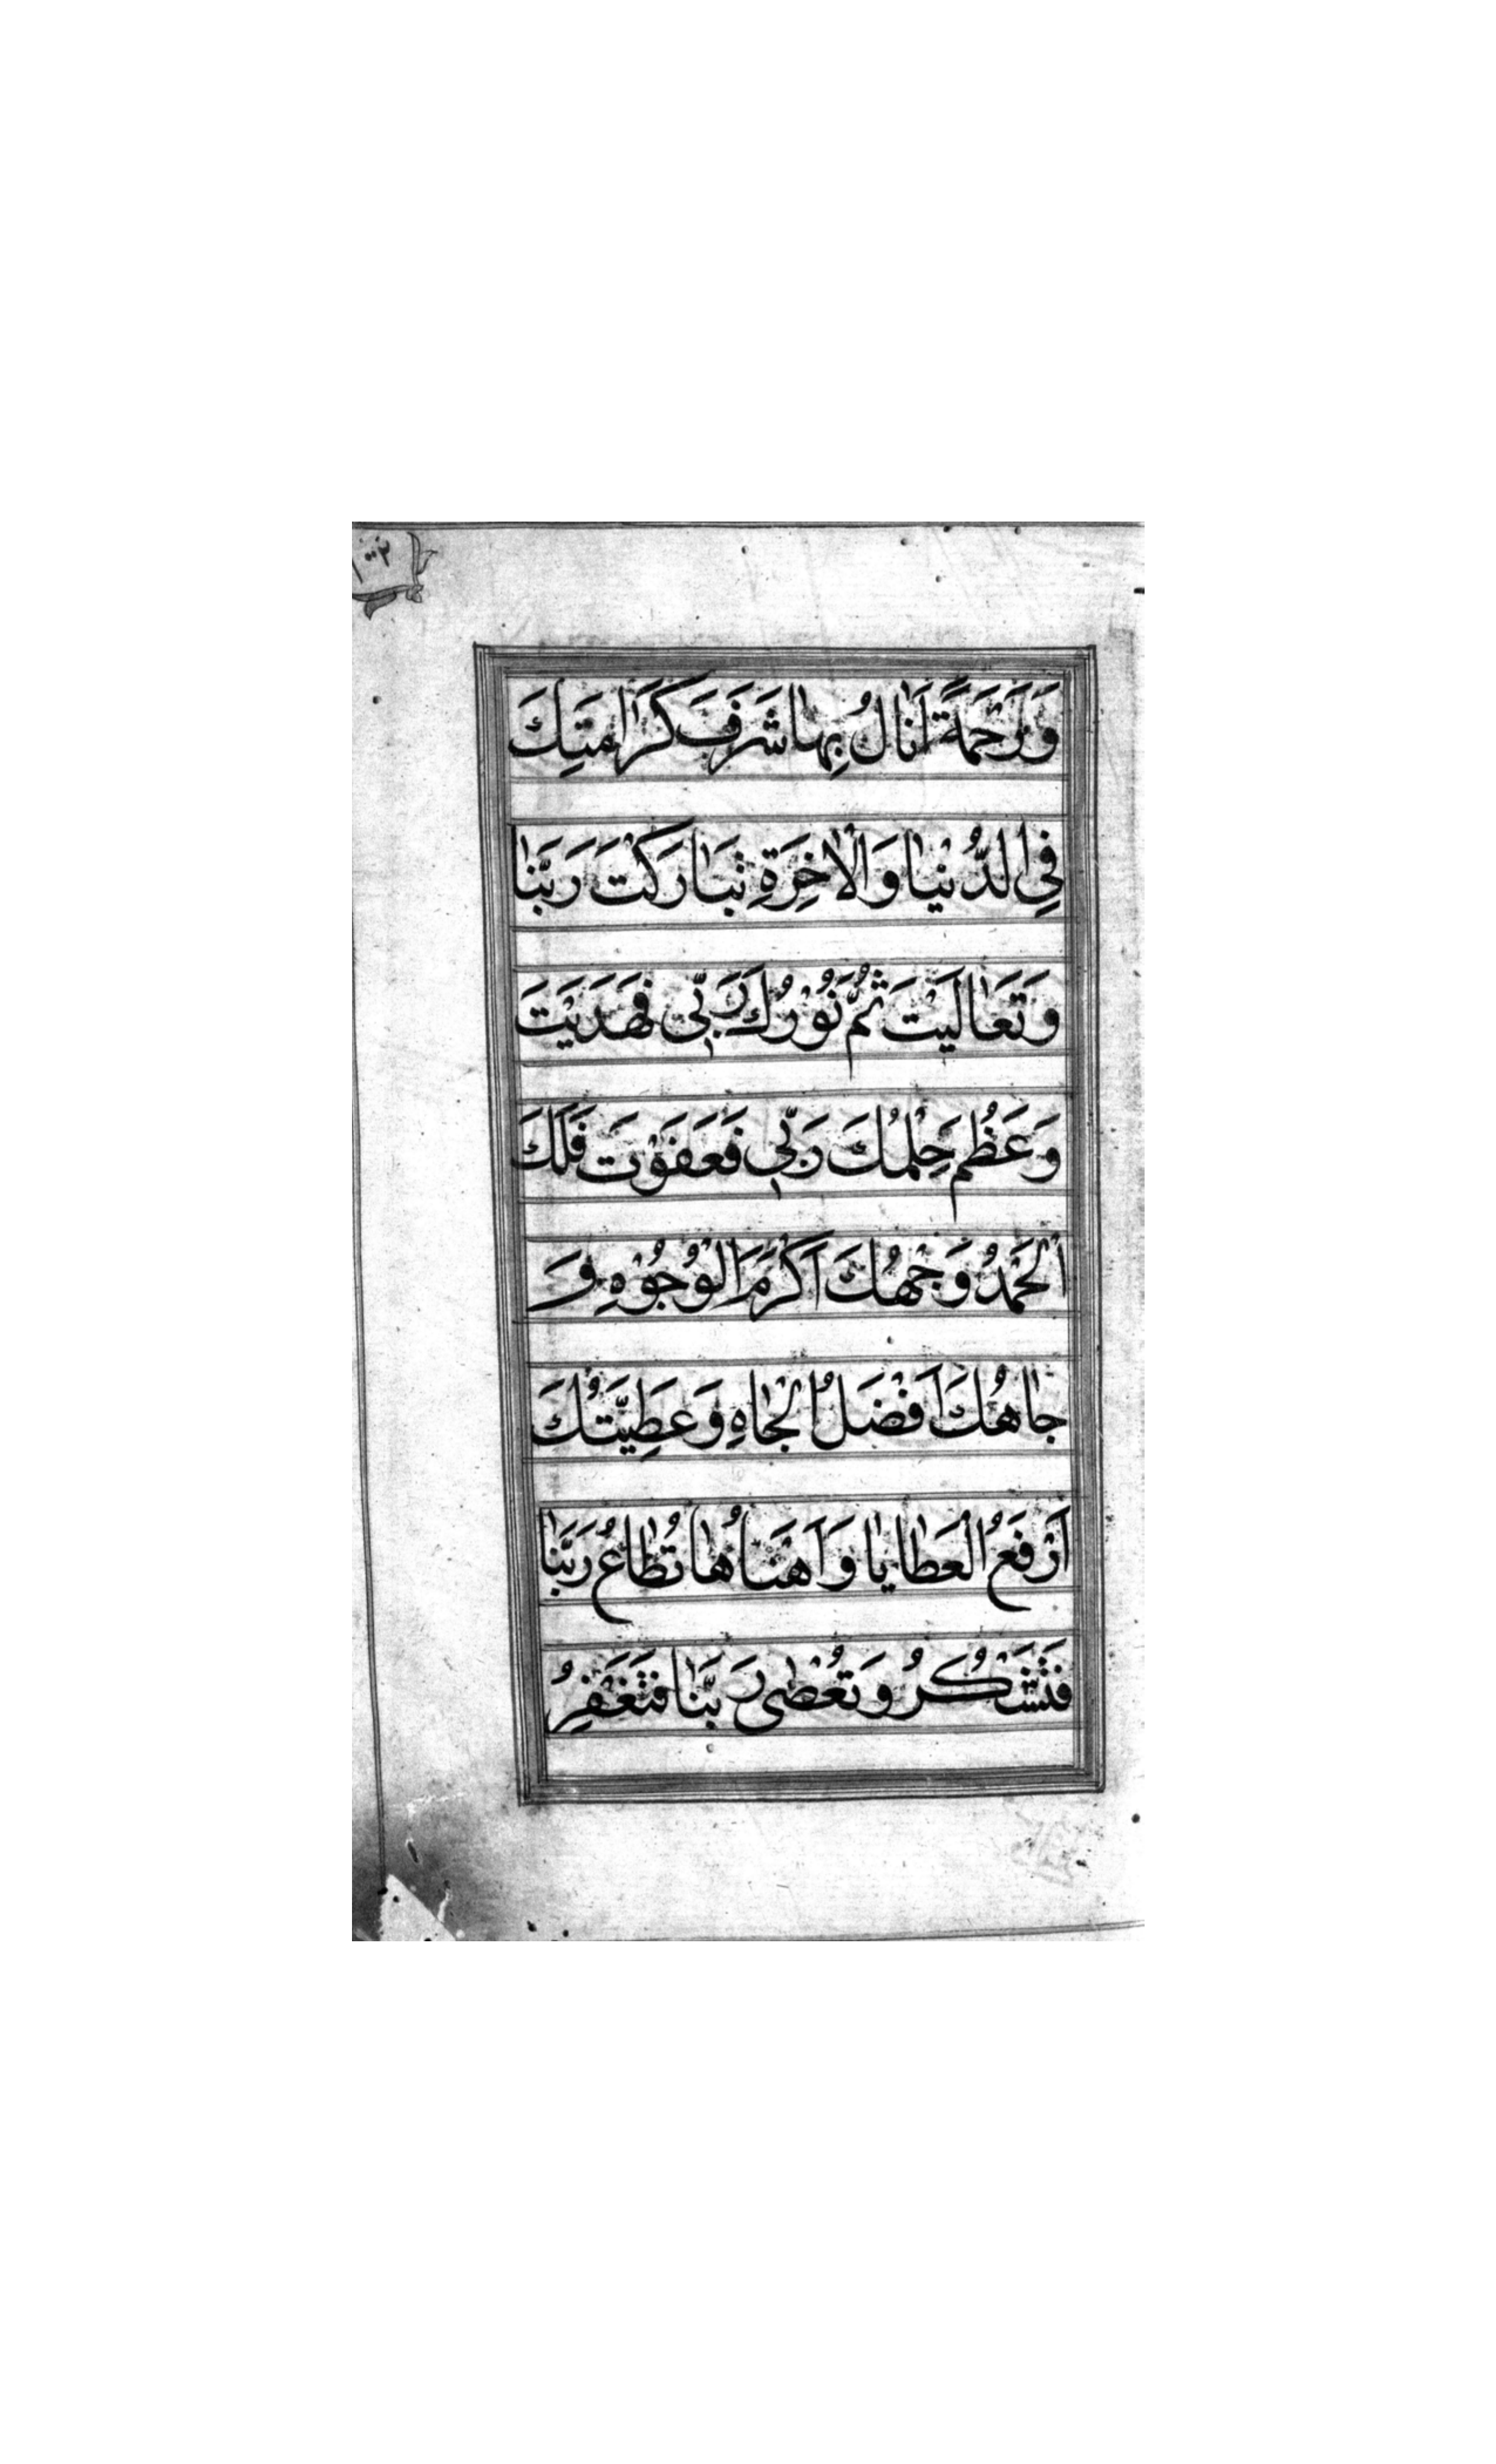 وَرَحْمَةً اَنَالُ بِهَا شَرَفَ كَرَامَتِكَ
فِي الدُّنْيَا وَالْاٰخِرَةِ تَبَارَكْتَ رَبَّنَا
وَتَعَالَيْتَ ثُمَّ نُوْرُكَ رَبِّي فَهَدَيْتَ
وَعَظُمَ حِلْمُكَ رَبِّي فَعَفَوْتَ فَلَكَ
الْحَمْدُ وَجْهُكَ اَكْرَمُ الْوُجُوْهِ وَ
جَاهُكَ اَفْضَلُ الْجَاهِ وَعَطِيَّتُكَ
اَرْفَعُ الْعَطَايَا وَاَهْنَاُهَا تُطَاعُ رَبَّنَا
فَتَشْكُرُ وَتُعْصٰى رَبَّنَا فَتَغْفِرُ